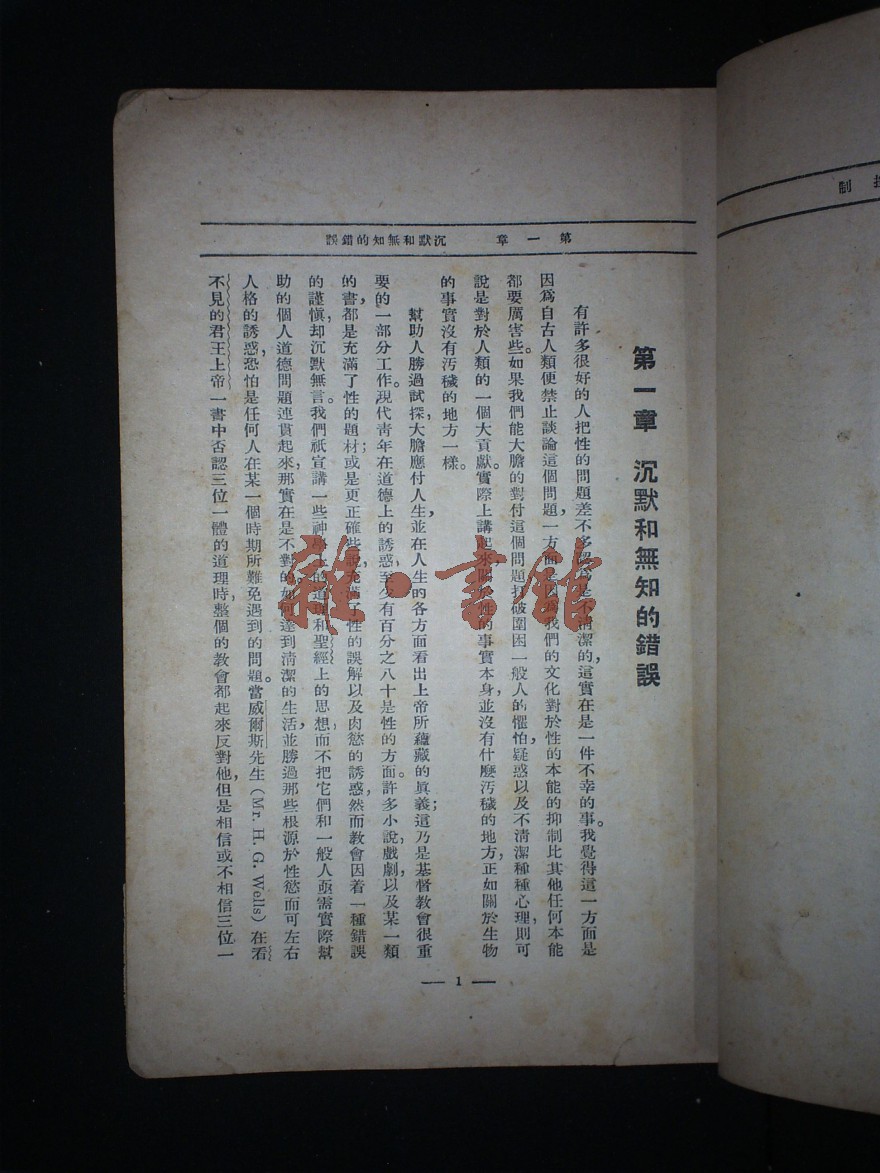 第一章 沉默和無知的錯誤
第一章 沉默和無知的錯誤
有許多很好的人把性的問題差不多認爲是不清潔的，這實在是一件不幸的事。我覺得這一方面是
因爲自古人類便禁止談論這個問題，一方面是因爲我們的文化對於性的本能的抑制比其他任何本能
都要厲害些。如果我們能大膽的對付這個問題，打破圍困一般人的懼怕疑惑以及不清潔種種心理，則可
說是對於人類的一個大貢獻。實際上講起來，關於性的事實本身，並沒有什麼汚穢的地方，正如關於生物
的事實沒有汚穢的地方一樣。
幫助人勝過試探，大膽應付人生，並在人生的各方面看出上帝所蘊藏的眞義；這乃是基督教會很重
要的一部分工作。現代青年在道德上的誘惑，至少有百分之八十是性的方面。許多小說，戲劇，以及某一類
的書，都是充滿了性的題材；或是更正確些說，充滿了性的誤解以及肉慾的誘惑，然而教會因着一種錯誤
的謹愼，却沉默無言。我們祇宣講一些神學上的道理和聖經上的思想，而不把它們和一般人亟需實際幫
助的個人道德問題連貫起來，那實在是不對的。如何達到清潔的生活，並勝過那些根源於性慾而可左右
人格的誘惑，恐怕是任何人在某一個時期所難免遇到的問題。當威爾斯先生（Mr. H. G. Wells）在看
不見的君王上帝一書中否認三位一體的道理時，整個的教會都起來反對他，但是相信或不相信三位一
— 1 —
制
雜·書館